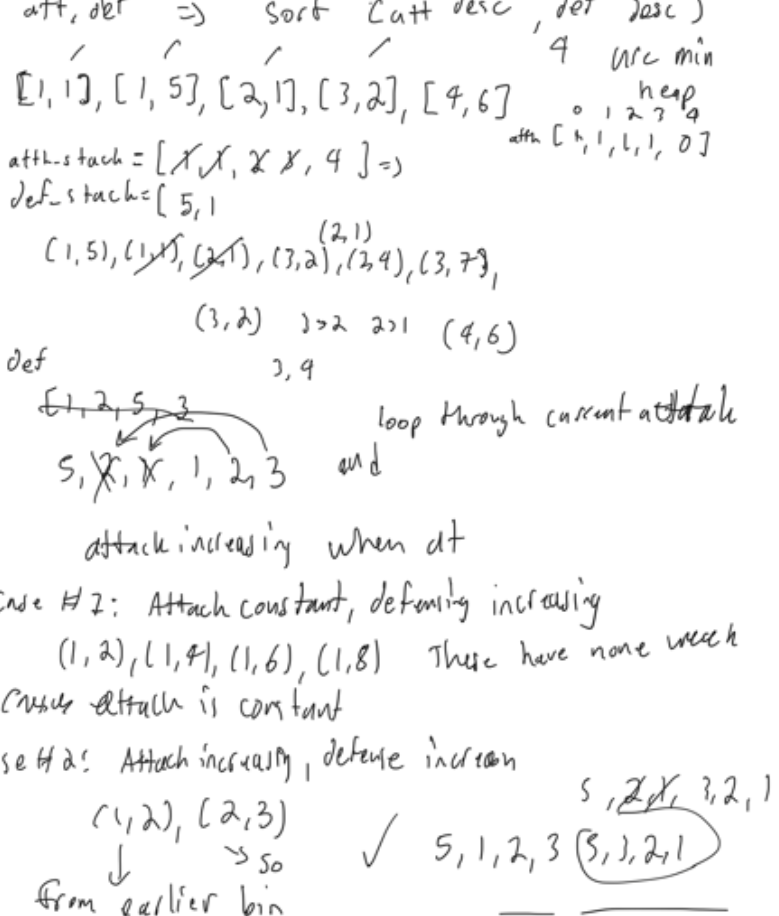 att, def => Sort (att desc, def desc)
4 use min
heap
[1,1], [1,5], [2,1], [3,2], [4,6]
0 1 2 3 4
1, 1, 0]
attk_stack = [1, 1, 2 3, 4 ] =>
def_stack = [ 5, 1
(2,1)
(1,5), (1,1), (2,1), (3,2), (3,4), (3,7),
(3,2) 3>2 2>1 (4,6)
3, 4
def
[1, 2, 5, 3
loop through current attack
5, 2, 1, 1, 2, 3 and
attack increasing when at
Case #1: Attack constant, defensing increasing
(1,2), (1,4), (1,6), (1,8) These have none weak
attack is constant
se #2: Attach increasing, defense increasn
5, 2, 1, 3, 2, 1
(1,2), (2,3)
5, 1, 2, 3
2, 1
so
from earlier bin